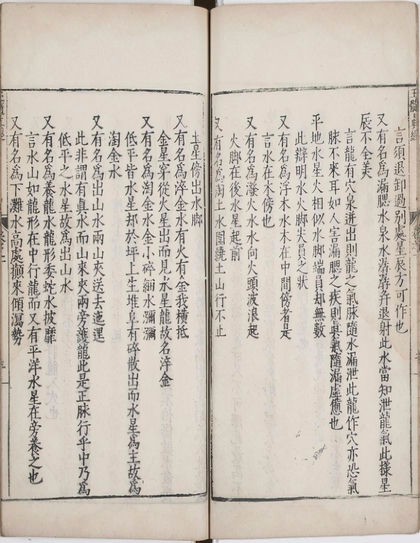 言須退卸過別處星辰方可作也
又有名爲漏腮水泉水潺潺并退射此水當知泄龍氣此樣星
辰不全美
言龍有穴泉迸出則龍之氣脉隨水漏泄此龍作穴亦恐氣
脉不來耳如人害漏腮之疾則具氣隨漏虛憊也
平地水星火相似水脚端貟却無數
此辯明水火脚天員之狀
又有名爲浮木水木在中間傍者是
言水在木傍也
又有名爲潑火水水向火頭波浪起
火脚在後水星起前
又有名爲淘土水圍繞土山行不止
土星傍出水脚
又有名爲淬金水有火有金我橫抵
金星穿從火星出而見水星龍故名淬金
又有名爲淘金水金小碎細水瀰瀰
低平皆水星却於坪上生堆阜有碎散出而水星爲主故爲
淘金水
又有名爲出山水兩山夾送去迤邐
此非謂有真水而山來夾兩旁護龍此是正脉行乎中乃爲
低平之水星故爲出山水
又有名爲養龍水龍形委蛇水披靡
言水山如龍形在中行龍而又有平洋水星在旁養之也
又有名爲下灘水高處攧來傾瀉勢